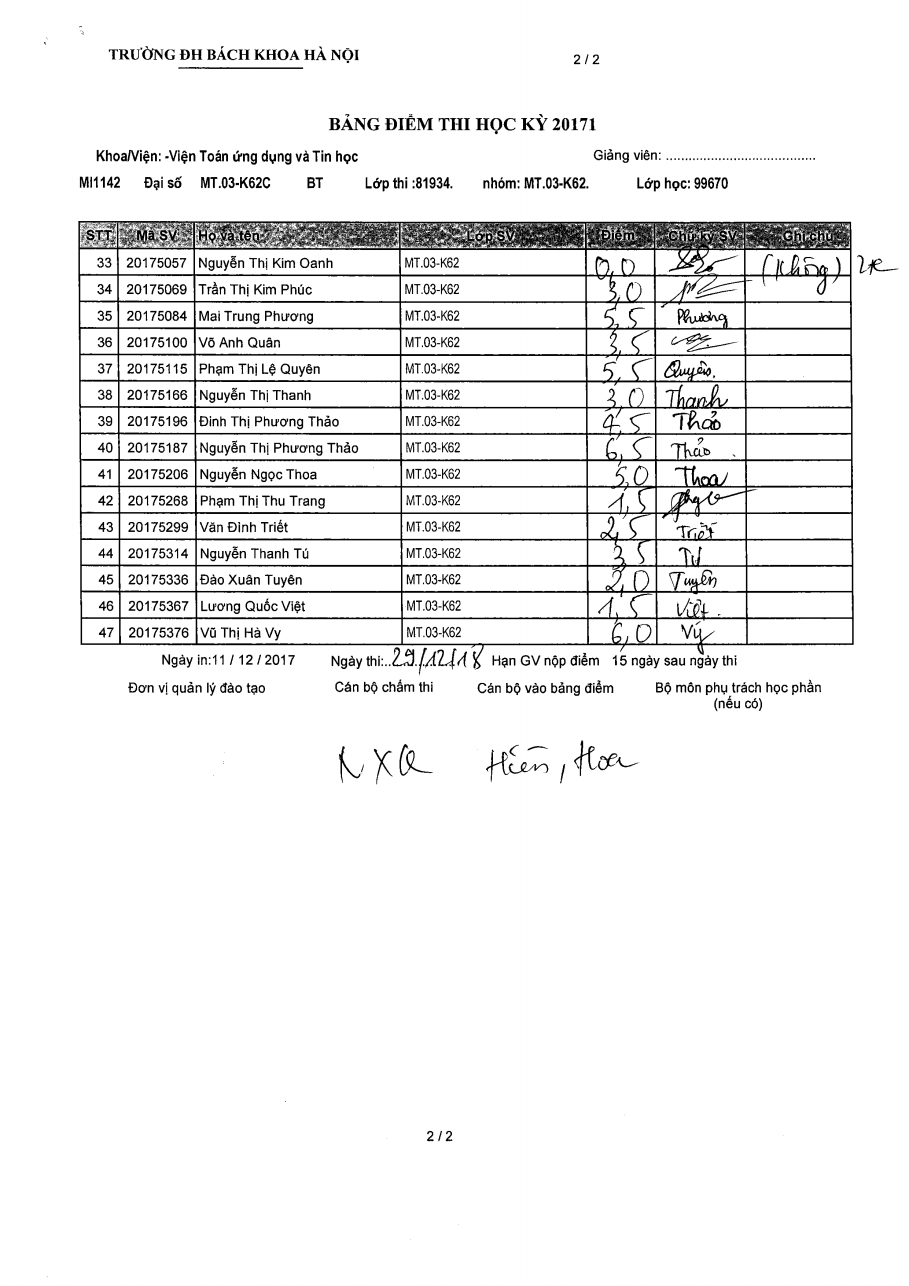 TRƯỜNG ĐH BÁCH KHOA HÀ NỘI 2 / 2
BẢNG ĐIỂM THI HỌC KỲ 20171
Khoa/Viện: -Viện Toán ứng dụng và Tin học Giảng viên: ........................................
MI1142 Đại số MT.03-K62C BT Lớp thi :81934. nhóm: MT.03-K62. Lớp học: 99670
STT Mã SV Họ và tên Lớp SV Điểm Chữ ký SV Ghi chú
33 20175057 Nguyễn Thị Kim Oanh MT.03-K62 0,0 (Không)
34 20175069 Trần Thị Kim Phúc MT.03-K62 3,0
35 20175084 Mai Trung Phương MT.03-K62 5,5 Phương
36 20175100 Võ Anh Quân MT.03-K62 3,5
37 20175115 Phạm Thị Lệ Quyên MT.03-K62 5,5 Quyên.
38 20175166 Nguyễn Thị Thanh MT.03-K62 3,0 Thanh
39 20175196 Đinh Thị Phương Thảo MT.03-K62 4,5 Thảo
40 20175187 Nguyễn Thị Phương Thảo MT.03-K62 6,5 Thảo
41 20175206 Nguyễn Ngọc Thoa MT.03-K62 5,0 Thoa
42 20175268 Phạm Thị Thu Trang MT.03-K62 1,5
43 20175299 Văn Đình Triết MT.03-K62 2,5 Triết
44 20175314 Nguyễn Thanh Tú MT.03-K62 3,5 Tú
45 20175336 Đào Xuân Tuyên MT.03-K62 2,0 Tuyên
46 20175367 Lương Quốc Việt MT.03-K62 1,5 Việt.
47 20175376 Vũ Thị Hà Vy MT.03-K62 6,0 Vy
Ngày in:11 / 12 / 2017 Ngày thi:..29/12/18 Hạn GV nộp điểm 15 ngày sau ngày thi
Đơn vị quản lý đào tạo Cán bộ chấm thi Cán bộ vào bảng điểm Bộ môn phụ trách học phần
(nếu có)
NXQ Hiền, Hoa
2 / 2